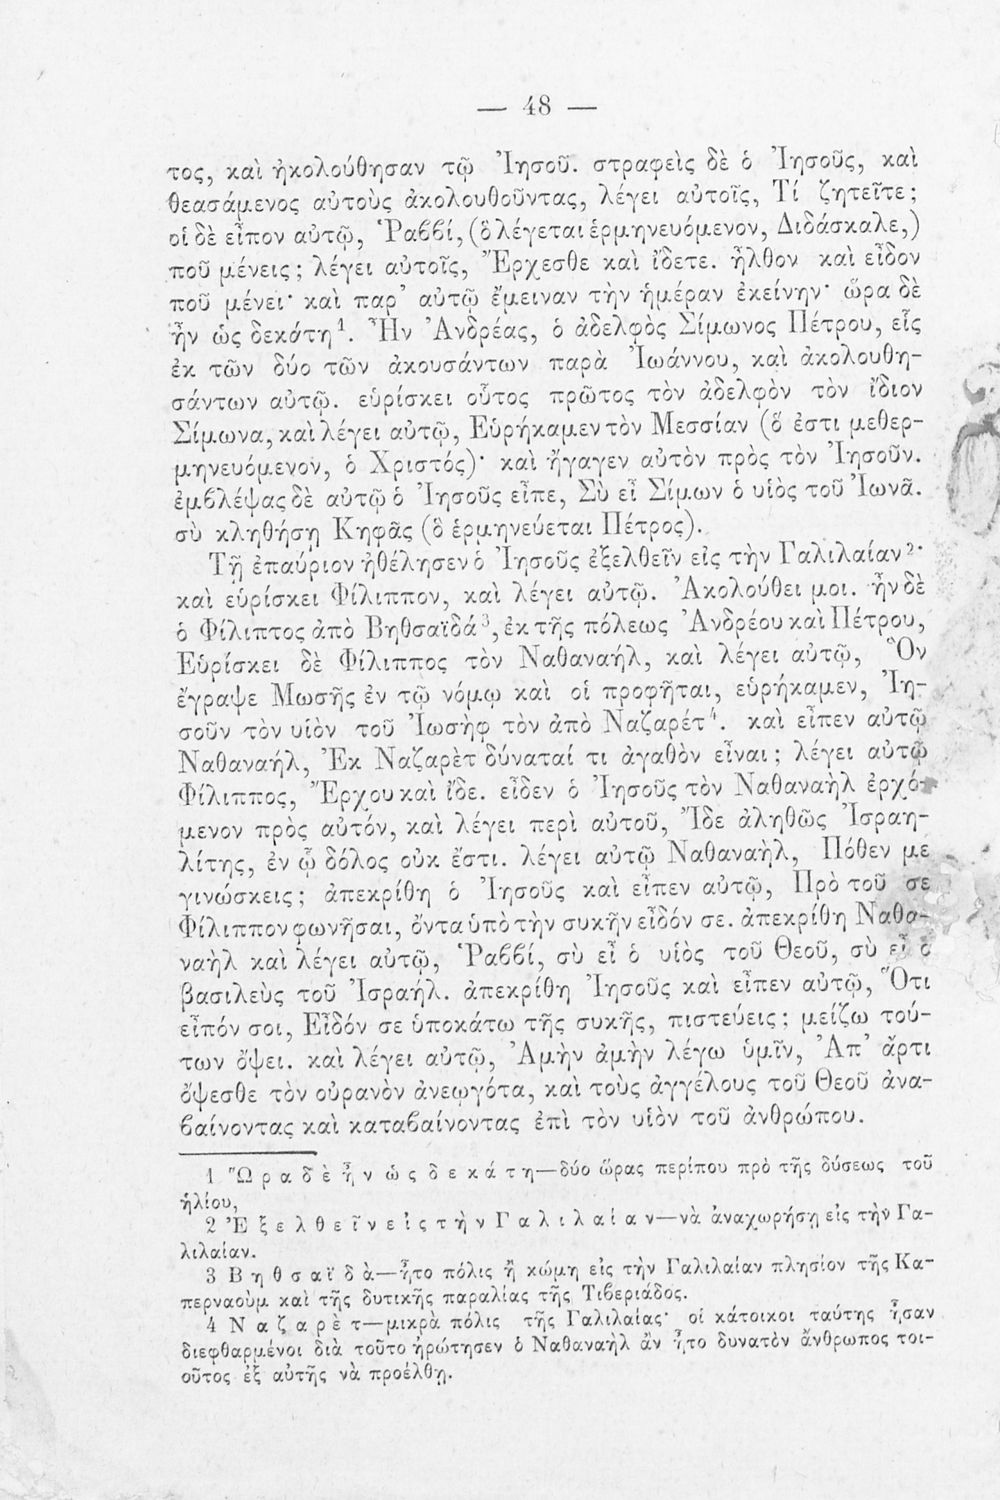 — 48 —
τος, καὶ ἠκολούθησαν τῷ Ἰησοῦ. στραφεὶς δὲ ὁ Ἰησοῦς, καὶ
θεασάμενος αὐτοὺς ἀκολουθοῦντας, λέγει αὐτοῖς, Τί ζητεῖτε;
οἱ δὲ εἶπον αὐτῷ, Ῥαββί, (ὃ λέγεται ἑρμηνευόμενον, Διδάσκαλε,)
ποῦ μένεις; λέγει αὐτοῖς, Ἔρχεσθε καὶ ἴδετε. ἦλθον καὶ εἶδον
ποῦ μένει· καὶ παρ' αὐτῷ ἔμειναν τὴν ἡμέραν ἐκείνην· ὥρα δὲ
ἦν ὡς δεκάτη¹. Ἦν Ἀνδρέας, ὁ ἀδελφὸς Σίμωνος Πέτρου, εἷς
ἐκ τῶν δύο τῶν ἀκουσάντων παρὰ Ἰωάννου, καὶ ἀκολουθη-
σάντων αὐτῷ. εὑρίσκει οὗτος πρῶτος τὸν ἀδελφὸν τὸν ἴδιον
Σίμωνα, καὶ λέγει αὐτῷ, Εὑρήκαμεν τὸν Μεσσίαν (ὅ ἐστι μεθερ-
μηνευόμενον, ὁ Χριστός)· καὶ ἤγαγεν αὐτὸν πρὸς τὸν Ἰησοῦν.
ἐμβλέψας δὲ αὐτῷ ὁ Ἰησοῦς εἶπε, Σὺ εἶ Σίμων ὁ υἱὸς τοῦ Ἰωνᾶ.
σὺ κληθήσῃ Κηφᾶς (ὃ ἑρμηνεύεται Πέτρος).
Τῇ ἐπαύριον ἠθέλησεν ὁ Ἰησοῦς ἐξελθεῖν εἰς τὴν Γαλιλαίαν²·
καὶ εὑρίσκει Φίλιππον, καὶ λέγει αὐτῷ. Ἀκολούθει μοι. ἦν δὲ
ὁ Φίλιπτος ἀπὸ Βηθσαϊδά³, ἐκ τῆς πόλεως Ἀνδρέου καὶ Πέτρου,
Εὑρίσκει δὲ Φίλιππος τὸν Ναθαναήλ, καὶ λέγει αὐτῷ, Ὃν
ἔγραψε Μωσῆς ἐν τῷ νόμῳ καὶ οἱ προφῆται, εὑρήκαμεν, Ἰη-
σοῦν τὸν υἱὸν τοῦ Ἰωσὴφ τὸν ἀπὸ Ναζαρέτ⁴. καὶ εἶπεν αὐτῷ
Ναθαναήλ, Ἐκ Ναζαρὲτ δύναταί τι ἀγαθὸν εἶναι; λέγει αὐτῷ
Φίλιππος, Ἔρχου καὶ ἴδε. εἶδεν ὁ Ἰησοῦς τὸν Ναθαναὴλ ἐρχό-
μενον πρὸς αὐτόν, καὶ λέγει περὶ αὐτοῦ, Ἴδε ἀληθῶς Ἰσραη-
λίτης, ἐν ᾧ δόλος οὐκ ἔστι. λέγει αὐτῷ Ναθαναὴλ, Πόθεν με
γινώσκεις; ἀπεκρίθη ὁ Ἰησοῦς καὶ εἶπεν αὐτῷ, Πρὸ τοῦ σε
Φίλιππον φωνῆσαι, ὄντα ὑπὸ τὴν συκῆν εἶδόν σε. ἀπεκρίθη Ναθα-
ναὴλ καὶ λέγει αὐτῷ, Ῥαββί, σὺ εἶ ὁ υἱὸς τοῦ Θεοῦ, σὺ εἶ ὁ
βασιλεὺς τοῦ Ἰσραήλ. ἀπεκρίθη Ἰησοῦς καὶ εἶπεν αὐτῷ, Ὅτι
εἶπόν σοι, Εἶδόν σε ὑποκάτω τῆς συκῆς, πιστεύεις; μείζω τού-
των ὄψει. καὶ λέγει αὐτῷ, Ἀμὴν ἀμὴν λέγω ὑμῖν, Ἀπ' ἄρτι
ὄψεσθε τὸν οὐρανὸν ἀνεῳγότα, καὶ τοὺς ἀγγέλους τοῦ Θεοῦ ἀνα-
βαίνοντας καὶ καταβαίνοντας ἐπὶ τὸν υἱὸν τοῦ ἀνθρώπου.
1 Ὥρα δὲ ἦν ὡς δεκάτη—δύο ὥρας περίπου πρὸ τῆς δύσεως τοῦ
ἡλίου,
2 Ἐξελθεῖν εἰς τὴν Γαλιλαίαν—νὰ ἀναχωρήσῃ εἰς τὴν Γα-
λιλαίαν.
3 Βηθσαϊδὰ—ἦτο πόλις ἢ κώμη εἰς τὴν Γαλιλαίαν πλησίον τῆς Κα-
περναοὺμ καὶ τῆς δυτικῆς παραλίας τῆς Τιβεριάδος.
4 Ναζαρὲτ—μικρὰ πόλις τῆς Γαλιλαίας· οἱ κάτοικοι ταύτης ἦσαν
διεφθαρμένοι διὰ τοῦτο ἠρώτησεν ὁ Ναθαναὴλ ἂν ἦτο δυνατὸν ἄνθρωπος τοι-
οῦτος ἐξ αὐτῆς νὰ προέλθῃ.